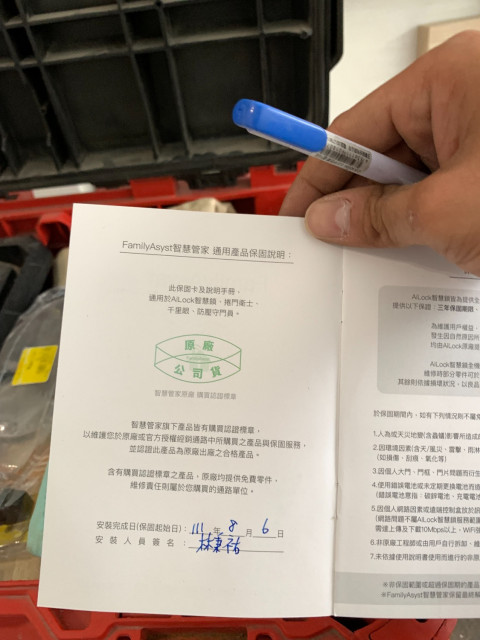 FamilyAsyst智慧管家 通用產品保固說明：
此保固卡及說明手冊,
通用於AiLock智慧鎖、捲門衛士、
千里眼、防壓守門員。
原廠
公司貨
智慧管家原廠 購買認證標章
智慧管家旗下產品皆有購買認證標章,
以維護您於原廠或官方授權經銷通路中所購買之產品與保固服務,
並認證此產品為原廠出廠之合格產品。
含有購買認證標章之產品, 原廠均提供免費零件,
維修責任則屬於您購買的通路單位。
安裝完成日(保固起始日)：111 年 8 月 6 日
安裝人員簽名：
AiLock智慧鎖皆為提供全
提供以下保證：三年保固期限,
為維護用戶權益,
發生因自然原因所
均由AiLock原廠
AiLock智慧鎖全機
維修時部分零件可於
其餘則依據損壞狀況, 以良品
於保固期間內, 如有下列情況則不屬
1.人為或天災地變(含蟲蟻)影響所造成
2.因環境因素(含天/風災、雷擊、雨淋
(如損傷、刮痕、氧化等)
3.因個人大門、門框、門片問題而衍生
4.使用錯誤電池或未定期更換電池而造
(錯誤電池意指：碳鋅電池、充電電池
5.因個人網路因素或遠端控制盒放於網
(網路問題不屬AiLock智慧鎖服務範圍
需達上傳及下載10Mbps以上、WiFi
6.非原廠工程師或由用戶自行拆卸、維
7.未依據使用說明書使用而進行的非
※非保固範圍或超過保固期的產品
※FamilyAsyst智慧管家保留最終解